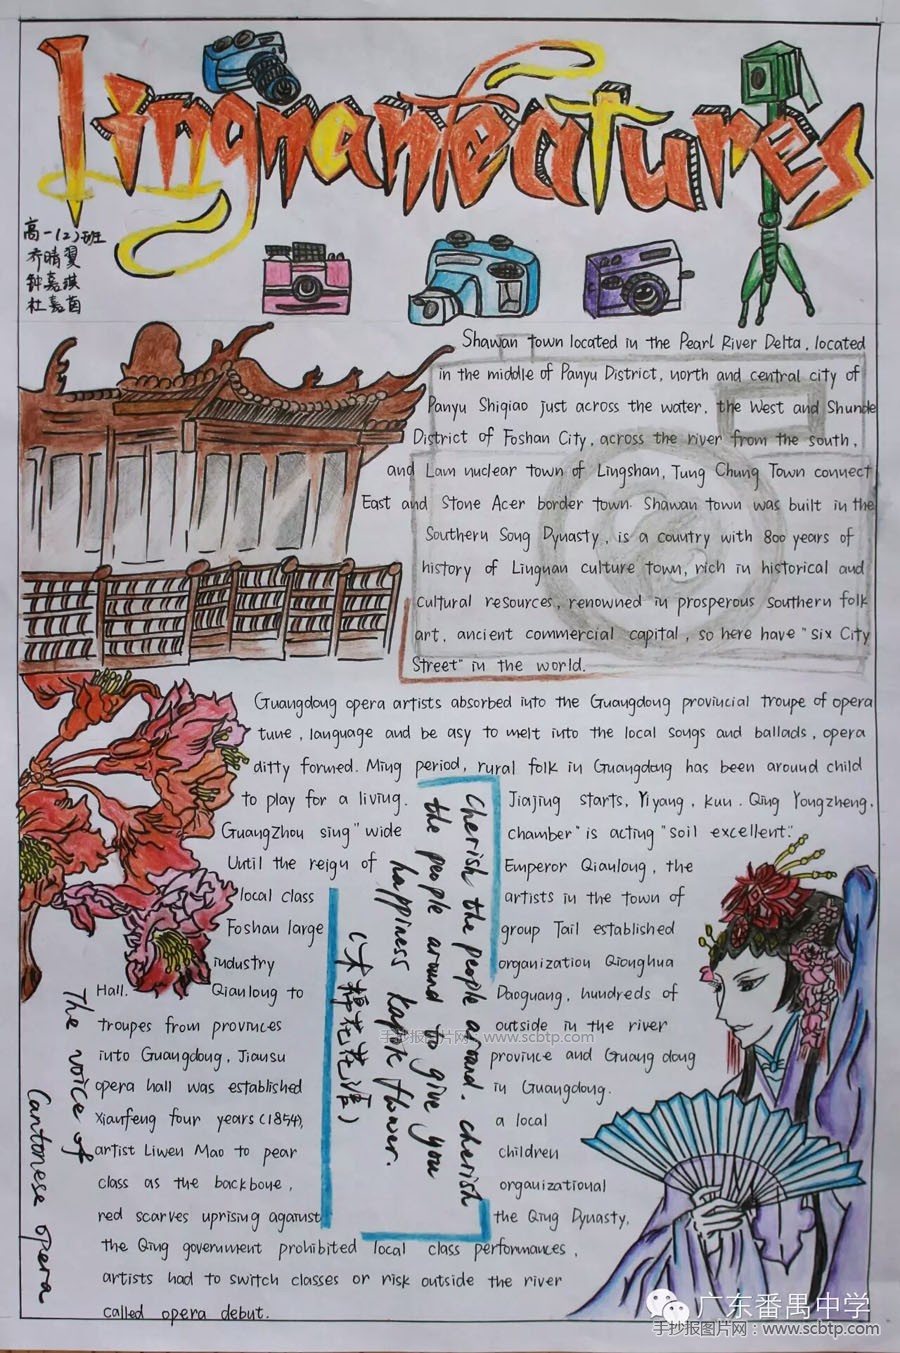 Lingnan features
高一(2)班
乔晴翼
钟嘉琪
杜嘉茵
Shawan town located in the Pearl River Delta, located
in the middle of Panyu District, north and central city of
Panyu Shiqiao just across the water, the West and Shunde
District of Foshan City, across the river from the south,
and Lam nuclear town of Lingshan, Tung Chung Town connect
East and Stone Acer border town. Shawan town was built in the
Southern Song Dynasty, is a country with 800 years of
history of Lingnan culture town, rich in historical and
cultural resources, renowned in prosperous southern folk
art, ancient commercial capital, so here have "six City
Street" in the world.
Guangdong opera artists absorbed into the Guangdong provincial troupe of opera
tune, language and be asy to melt into the local songs and ballads, opera
ditty formed. Ming period, rural folk in Guangdong has been around child
to play for a living. Jiajing starts, Yiyang, kun. Qing Yongzheng,
GuangZhou sing" wide chamber" is acting "soil excellent."
Until the reign of Emperor Qianlong, the
local class artists in the town of
Foshan large group Tail established
industry organization Qionghua
Hall. Qianlong to Daoguang, hundreds of
troupes from provinces outside in the river
into Guangdong, Jiansu province and Guang dong
opera hall was established in Guangdong.
Xianfeng four years (1854), a local
artist Liwen Mao to pear children
class as the backbone, organizational
red scarves uprising against the Qing Dynasty,
the Qing government prohibited local class performances,
artists had to switch classes or risk outside the river
called opera debut.
Cherish the people around. cherish
the people around to give you
happiness kapok flower.
(木棉花花语)
The voice of
Cantonese opera
手抄报图片网：www.scbtp.com
广东番禺中学
手抄报图片网：www.scbtp.com